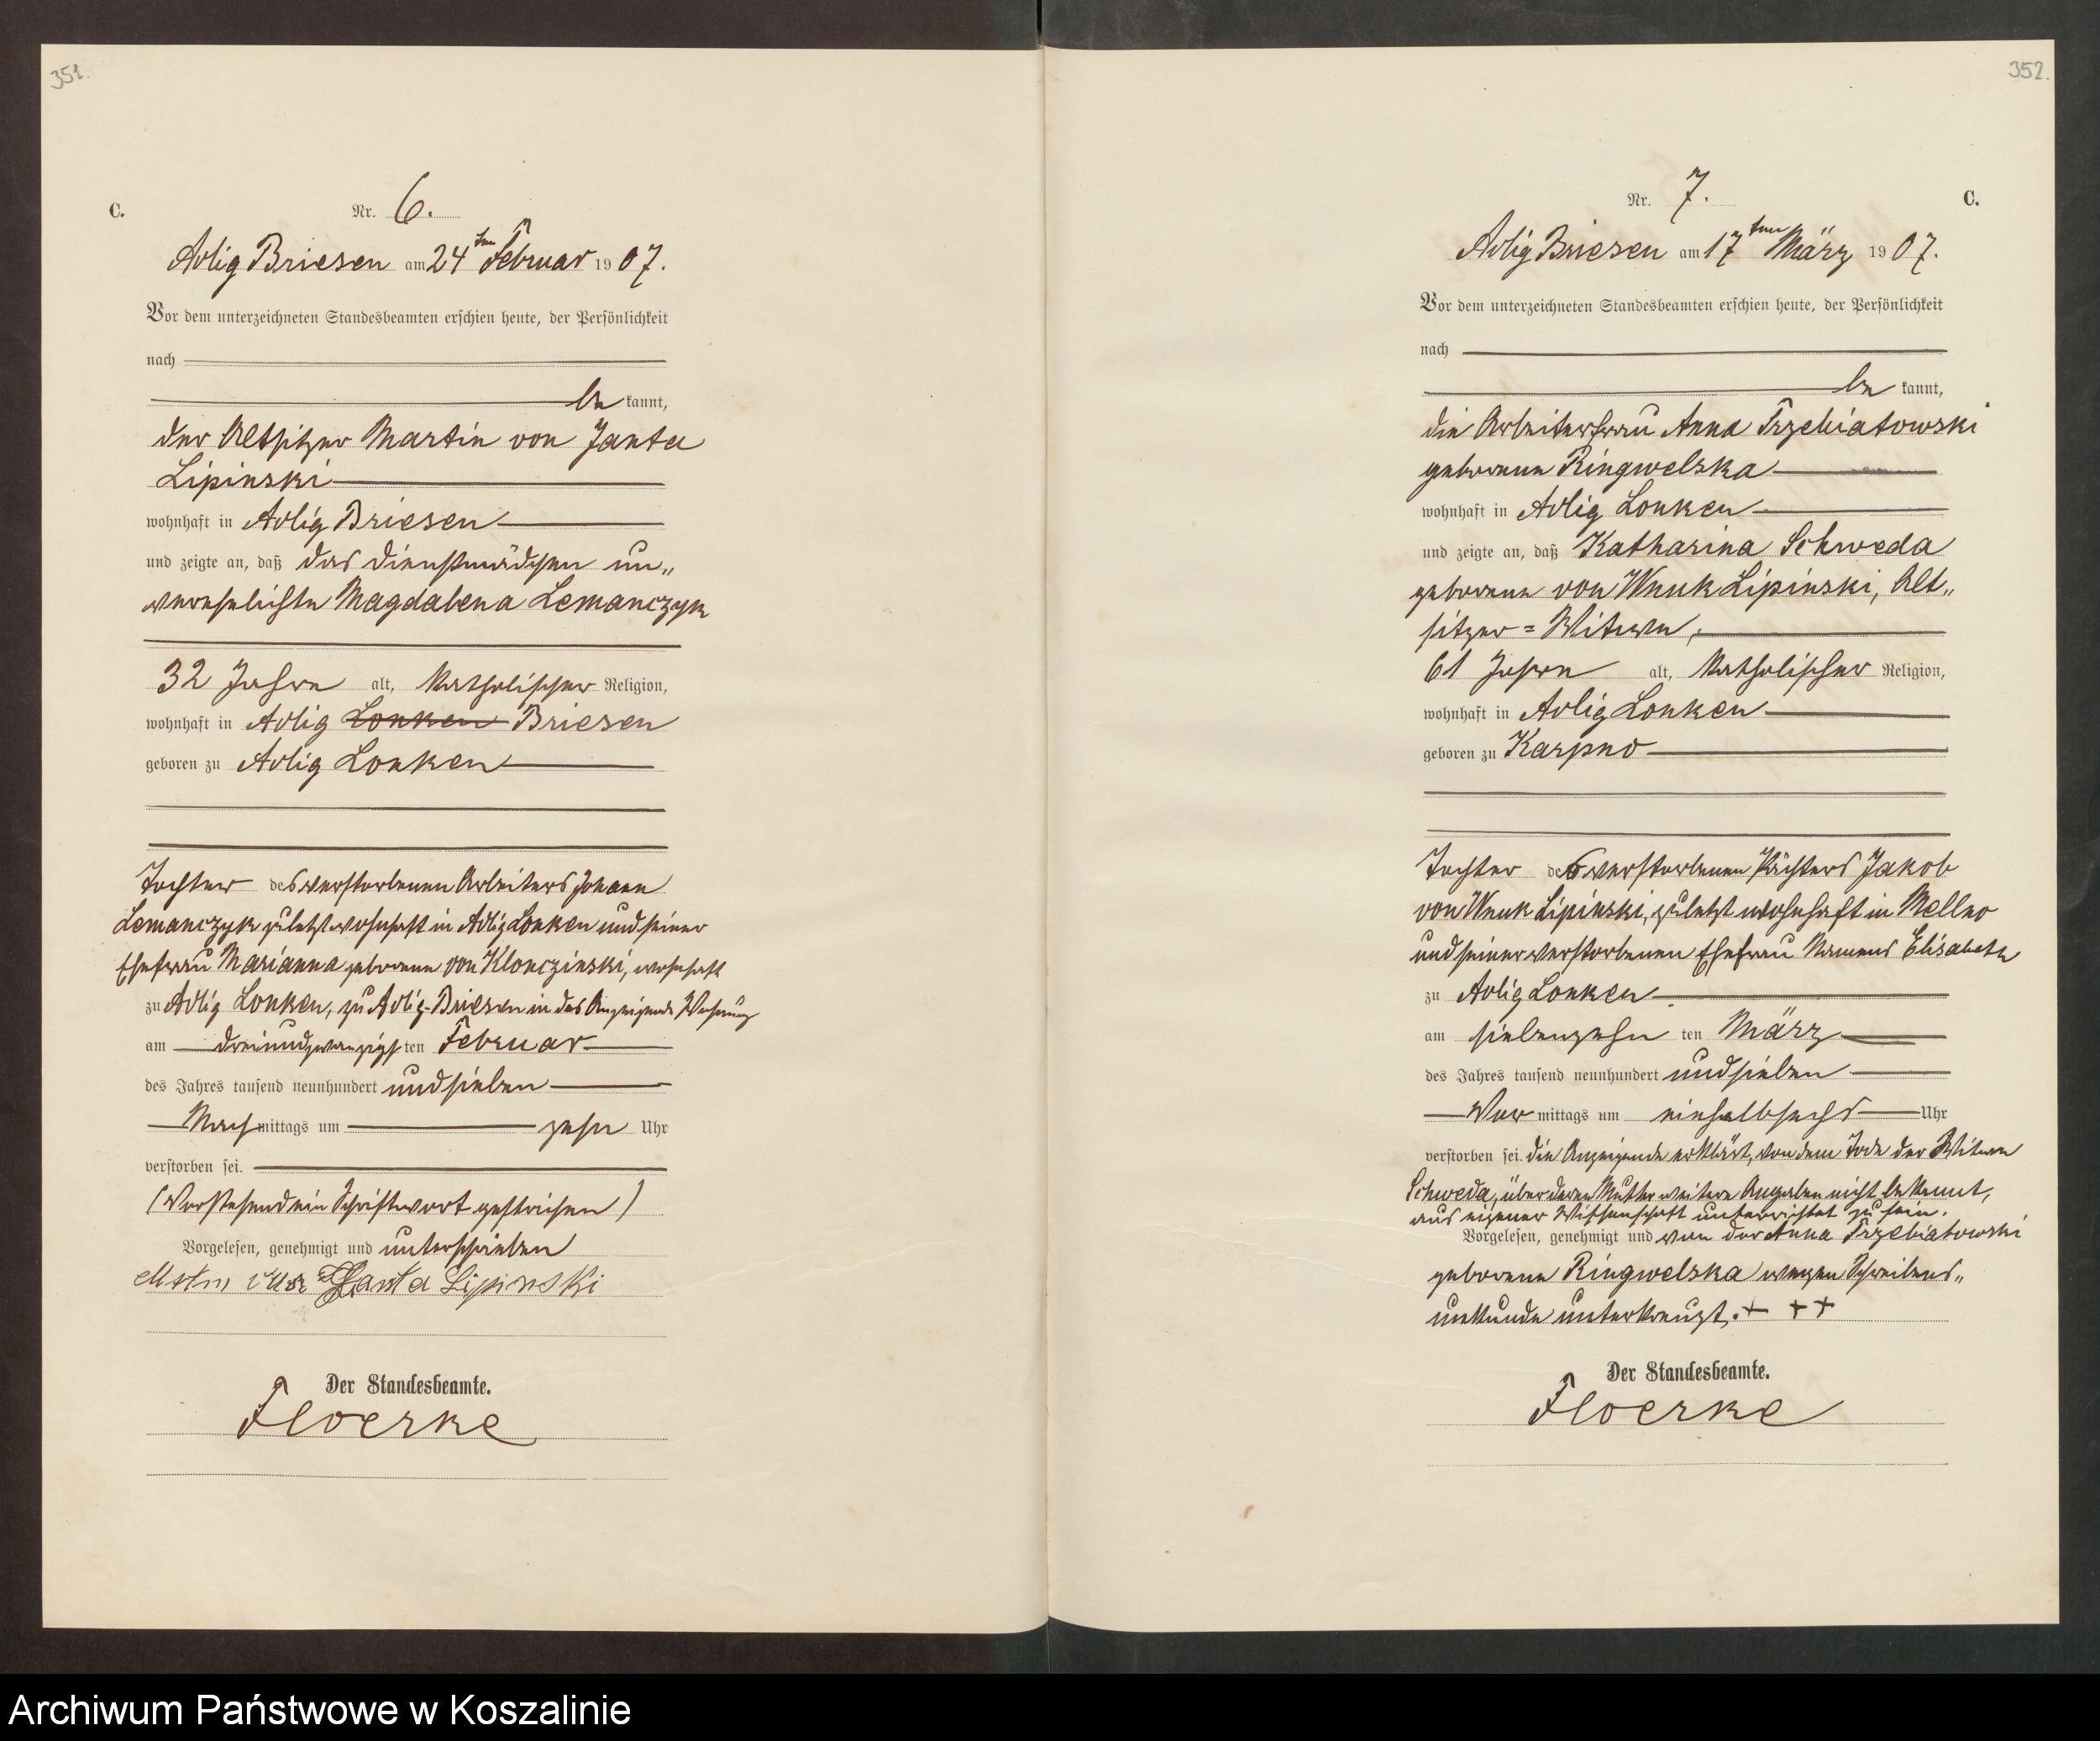 351.
C.
Nr. 6.
Adlig Briesen am 24ten Februar 1907.
Vor dem unterzeichneten Standesbeamten erschien heute, der Persönlichkeit
nach
be kannt,
der Altsitzer Martin von Janta
Lipinski
wohnhaft in Adlig Briesen
und zeigte an, daß das Dienstmädchen un„
verehelichte Magdalena Lemanczyk
32 Jahre alt, katholischer Religion,
wohnhaft in Adlig Lonken Briesen
geboren zu Adlig Lonken
Tochter des verstorbenen Arbeiters Johann
Lemanczyk zuletzt wohnhaft in Adlig Lonken und seiner
Ehefrau Marianna geborene von Klonczinski, wohnhaft
zu Adlig Lonken, zu Adlig-Briesen in des Anzeigende Wohnung
am dreiundzwanzigsten Februar
des Jahres tausend neunhundert und sieben
Nachmittags um zehn Uhr
verstorben sei.
(Vorstehend ein Schriftwort gestrichen)
Vorgelesen, genehmigt und unterschrieben
Janta Lipinski
Der Standesbeamte.
Floerke
352.
Nr. 7.
C.
Adlig Briesen am 17ten März 1907.
Vor dem unterzeichneten Standesbeamten erschien heute, der Persönlichkeit
nach
be kannt,
die Arbeiterfrau Anna Trzebiatowski
geborene Ringwelska
wohnhaft in Adlig Lonken
und zeigte an, daß Katharina Schweda
geborene von Wnuk Lipinski, Alt„
sitzer=Witwe,
61 Jahre alt, katholischer Religion,
wohnhaft in Adlig Lonken
geboren zu Karpno
Tochter des verstorbenen Pächters Jakob
von Wnuk Lipinski, zuletzt wohnhaft in Mellno
und seiner verstorbenen Ehefrau Namens Elisabeth
zu Adlig Lonken
am siebenzehn ten März
des Jahres tausend neunhundert und sieben
Vor mittags um einhalbsechs Uhr
verstorben sei. Die Anzeigende erklärt, von dem Tode der Witwe
Schweda, über deren Mutter weitere Angaben nicht bekannt,
aus eigener Wissenschaft unterrichtet zu sein.
Vorgelesen, genehmigt und von der Anna Trzebiatowski
geborene Ringwelska wegen Schreibens„
unkunde unterkreuzt. + + +
Der Standesbeamte.
Floerke
Archiwum Państwowe w Koszalinie